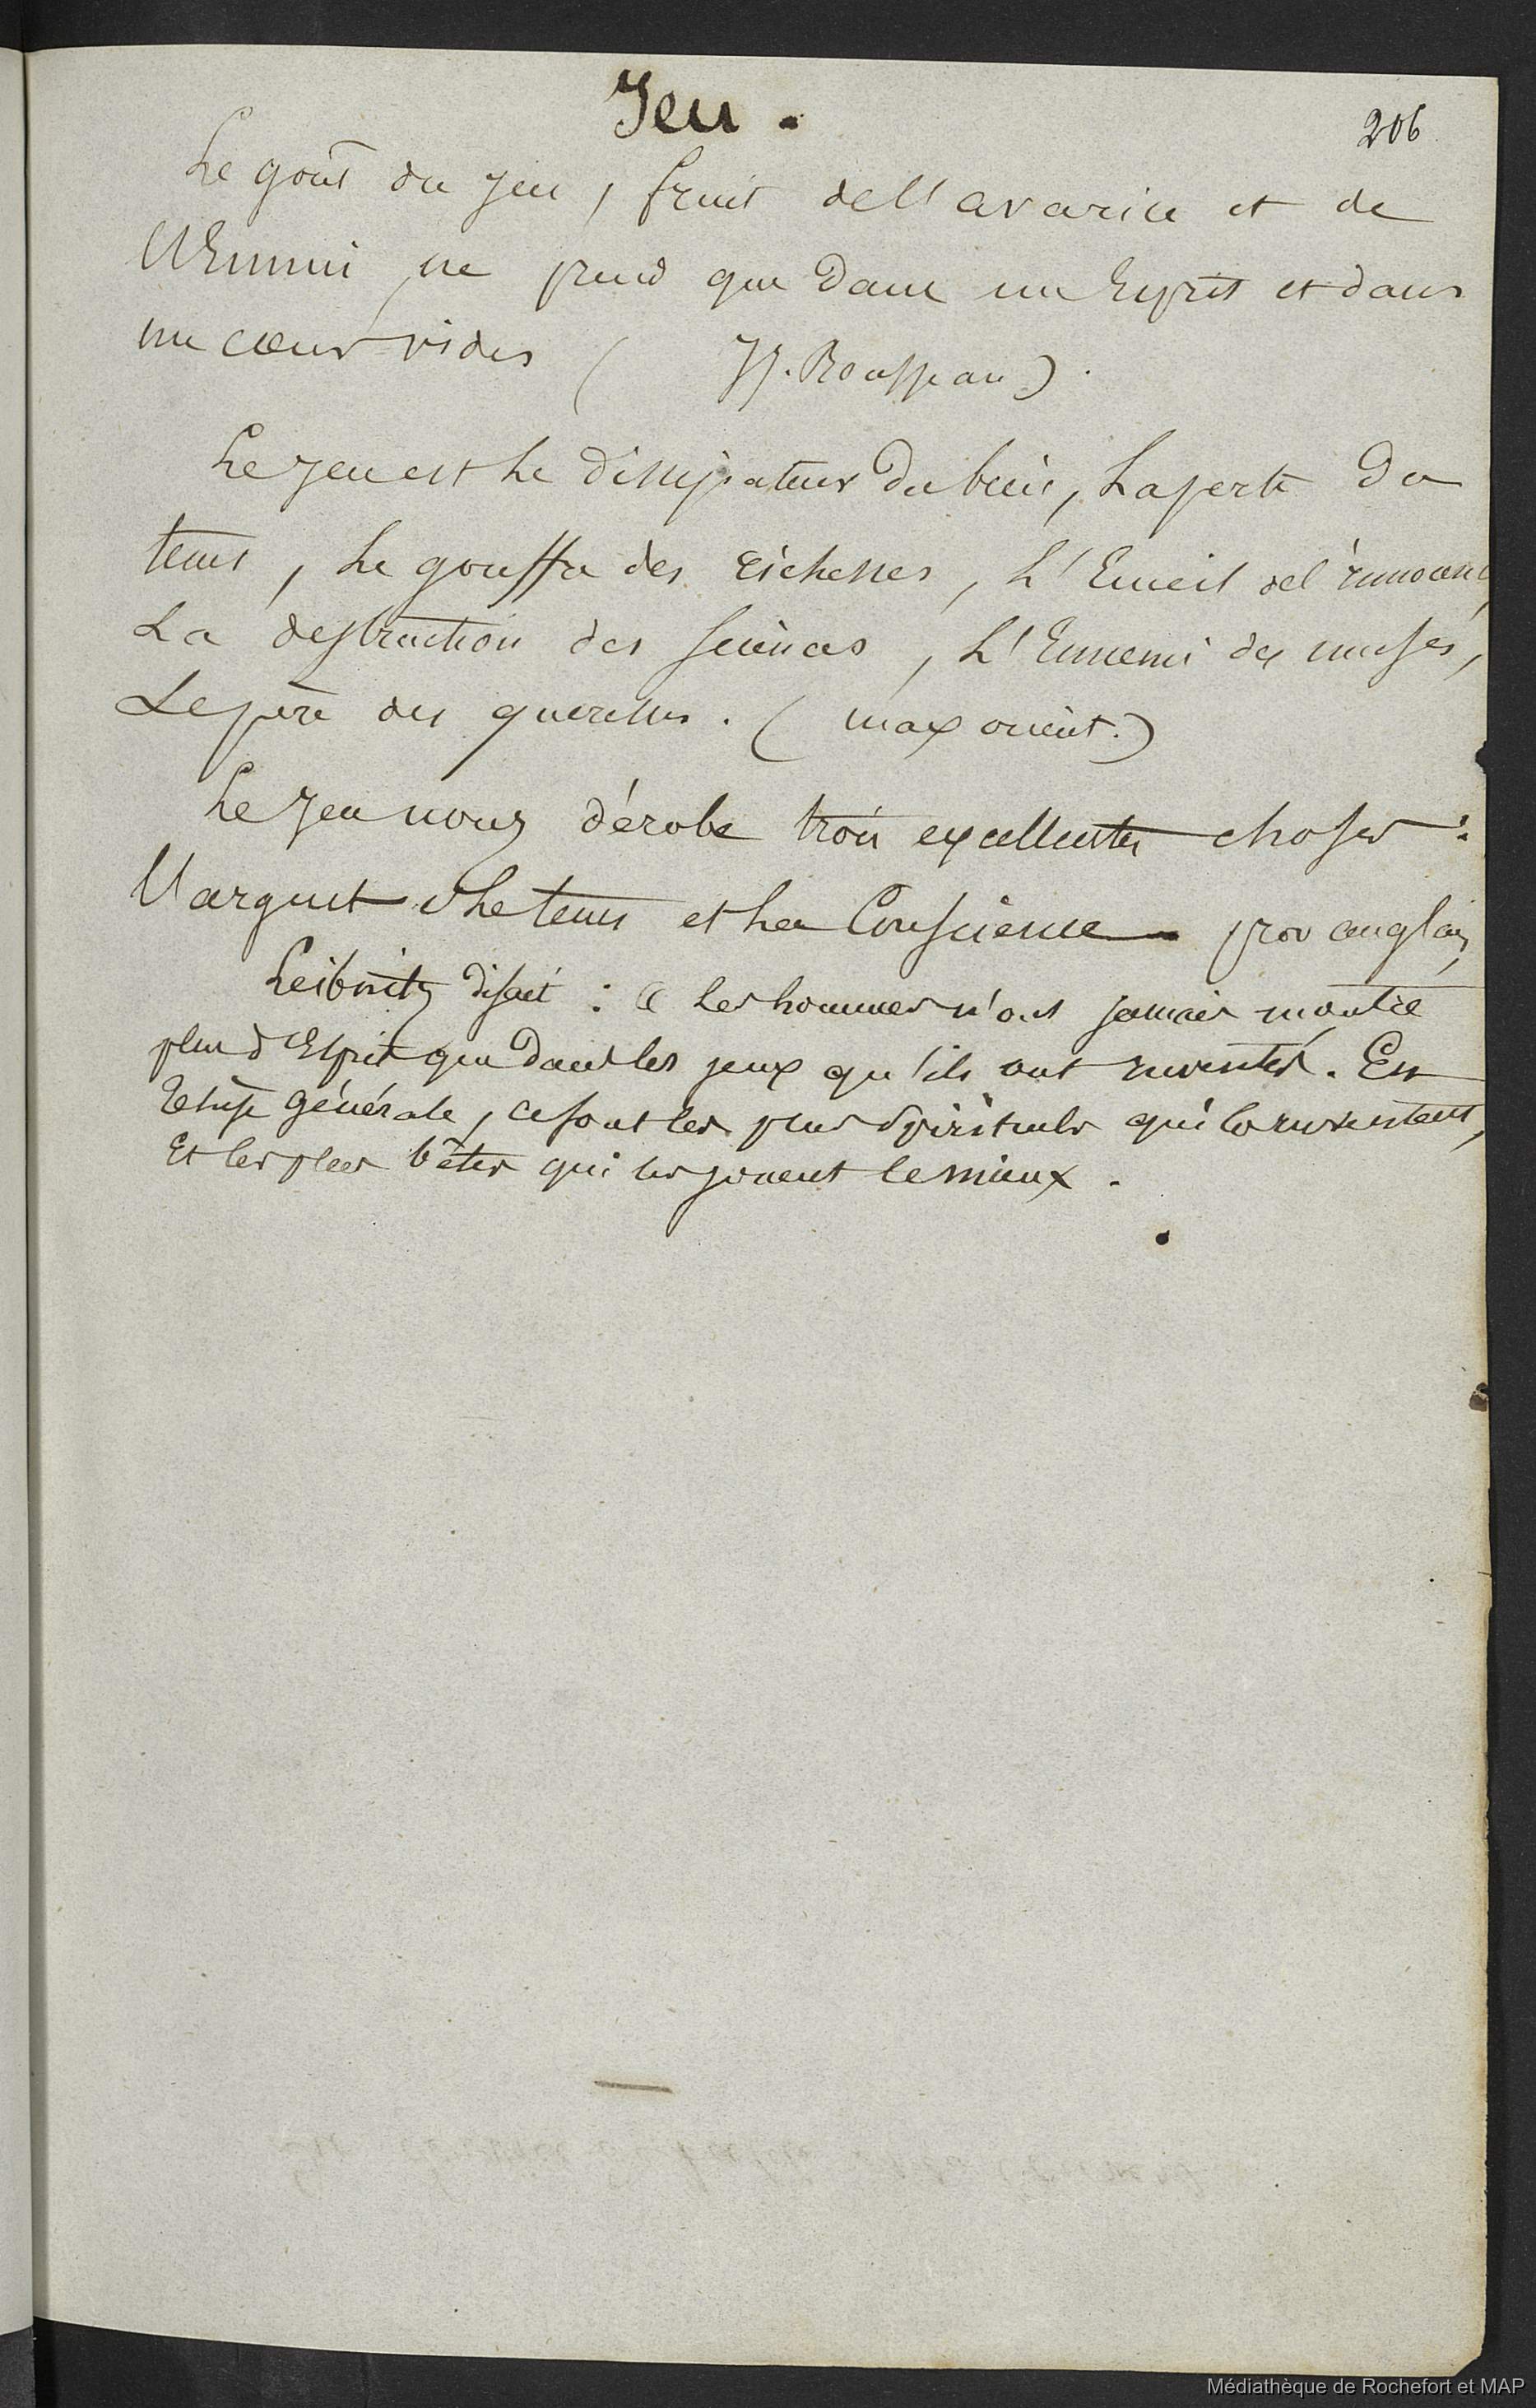 Jeu.
206
Le goût du jeu, fruit de l'avarice et de
l'Ennui ne prend que dans un Esprit et dans
un cœur vides ( JJ. Rousseau).
Le jeu est le dissipateur du bien, la perte du
tems, le gouffre des richesses, L'Ecueil de l'innocence,
La destruction des sciences, L'Ennemi des muses,
Le père des querelles. (max orient.)
Le Jeu nous dérobe trois excellentes choses :
l'argent le tems et la Conscience - prov anglais
Leibnitz disait : « les hommes n'ont jamais montré
plus d'Esprit que dans les jeux qu'ils ont inventés. En
thèse générale, ce sont les plus spirituels qui les inventent,
Et les plus bêtes qui les jouent le mieux.
Médiathèque de Rochefort et MAP